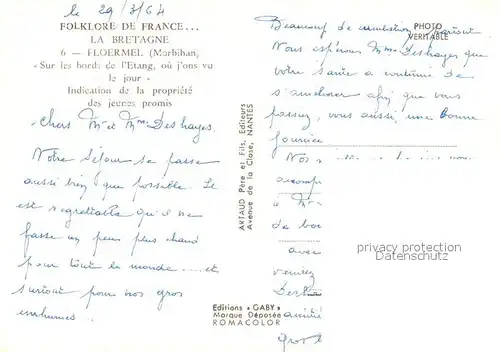 le 29/3/64
FOLKLORE DE FRANCE...
LA BRETAGNE
6 — PLOERMEL (Morbihan)
« Sur les bords de l'Etang, où j'ons vu
le jour »
Indication de la propriété
des jeunes promis
Chers Mr et Mme Deshayes.
Notre séjour se passe
aussi bien que possible. Il
est regrettable qu'il ne
fasse un peu plus chaud
pour tout le monde....et
surtout pour nos gros
enrhumés.
ARTAUD Père et Fils, Editeurs
Avenue de la Close, NANTES
Editions « GABY »
Marque Déposée
ROMACOLOR
PHOTO
VERITABLE
Beaucoup de partout
Nous espérons Mme Deshayes que
votre santé a continué de
s'améliorer afin que vous
passiez, vous aussi, une bonne
journée
Nos
accomp
à M
de bo
avec
veuillez
Desh
amitié
gros
privacy protection
Datenschutz